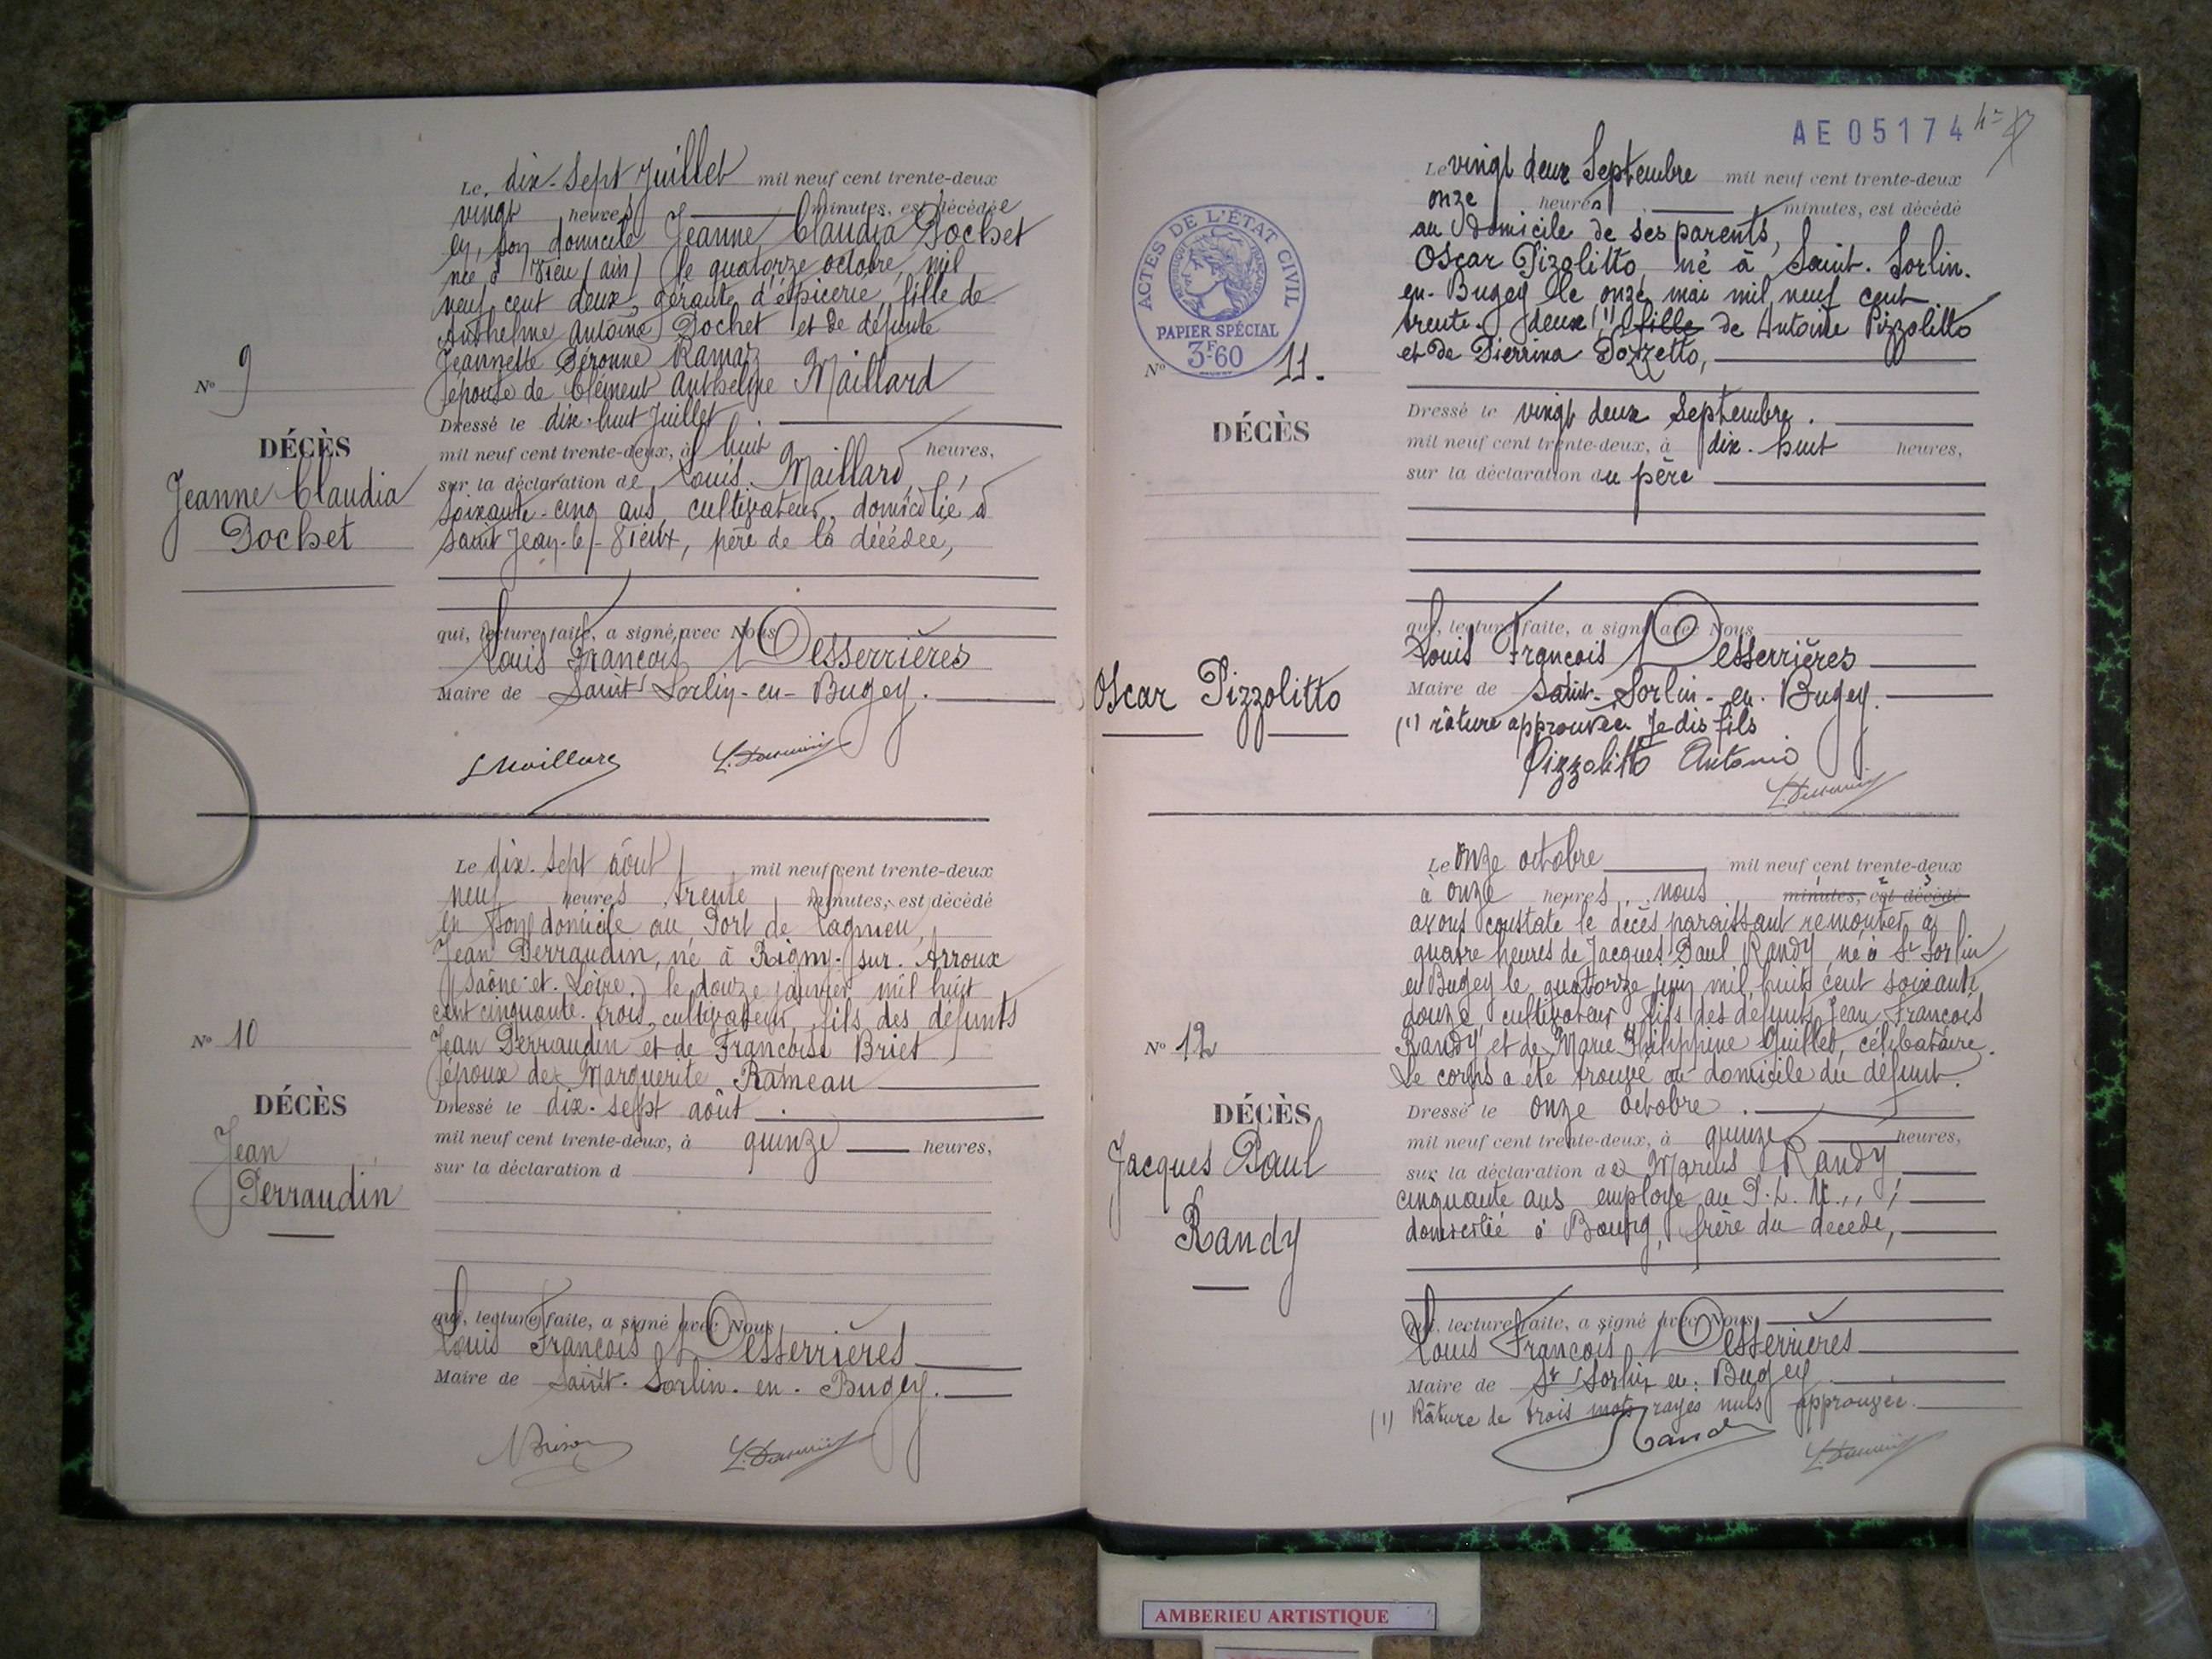 Le dix-sept Juillet mil neuf cent trente-deux
vingt heures minutes, est décédée
en son domicile Jeanne Claudia Pochet
née à Vieu (ain) le quatorze octobre mil
neuf cent deux, gérante d'épicerie, fille de
Anthelme Antoine Pochet et de défunte
Jeannette Péronne Ramaz
épouse de Clément Anthelme Maillard
Dressé le dix-huit Juillet.
mil neuf cent trente-deux, à huit heures,
sur la déclaration de Louis Maillard,
soixante-cinq ans, cultivateur, domicilié à
Saint Jean-le-Vieux, père de la décédée,
qui, lecture faite, a signé avec Nous
Louis François Desserrières
Maire de Saint Sorlin-en-Bugey.
N° 9
DÉCÈS
Jeanne Claudia
Pochet
L Maillard
Le dix-sept août mil neuf cent trente-deux
neuf heures trente minutes, est décédé
en son domicile au Port de Lagnieu,
Jean Perraudin, né à Rigny-sur-Arroux
(Saône-et-Loire) le douze janvier mil huit
cent cinquante-trois, cultivateur, fils des défunts
Jean Perraudin et de Françoise Briet
époux de Marguerite Rameau
Dressé le dix-sept août.
mil neuf cent trente-deux, à quinze heures,
sur la déclaration d
qui, lecture faite, a signé avec Nous
Louis François Desserrières
Maire de Saint-Sorlin-en-Bugey.
N° 10
DÉCÈS
Jean
Perraudin
AE05174
ACTES DE L'ÉTAT CIVIL
PAPIER SPÉCIAL
3F-60
Le vingt deux Septembre mil neuf cent trente-deux
onze heures minutes, est décédé
au domicile de ses parents,
Oscar Pizolitto, né à Saint-Sorlin-
en-Bugey le onze mai mil neuf cent
trente-deux (1) fille de Antoine Pizzolitto
et de Pierrina Pozzetto,
Dressé le vingt deux Septembre.
mil neuf cent trente-deux, à dix-huit heures,
sur la déclaration du père
qui, lecture faite, a signé avec Nous
Louis François Desserrières
Maire de Saint-Sorlin-en-Bugey.
(1) râture approuvée Je dis fils
Pizzolitto Antonio
N° 11.
DÉCÈS
Oscar Pizzolitto
Le onze octobre mil neuf cent trente-deux
à onze heures, nous minutes, est décédé
avons constaté le décès paraissant remonter à
quatre heures de Jacques Paul Randy, né à St Sorlin
en Bugey le quatorze juin mil huit cent soixante
douze, cultivateur, fils des défunts Jean François
Randy et de Marie Philippine Quillet, célibataire.
Le corps a été trouvé au domicile du défunt.
Dressé le onze octobre.
mil neuf cent trente-deux, à quinze heures,
sur la déclaration de Marius Randy
cinquante ans employé au P.L.M.,
domicilié à Bourg, frère du décédé,
qui, lecture faite, a signé avec Nous
Louis François Desserrières
Maire de St Sorlin en Bugey
(1) Râture de trois mots rayés nuls approuvée.
Randy
N° 12
DÉCÈS
Jacques Paul
Randy
AMBERIEU ARTISTIQUE